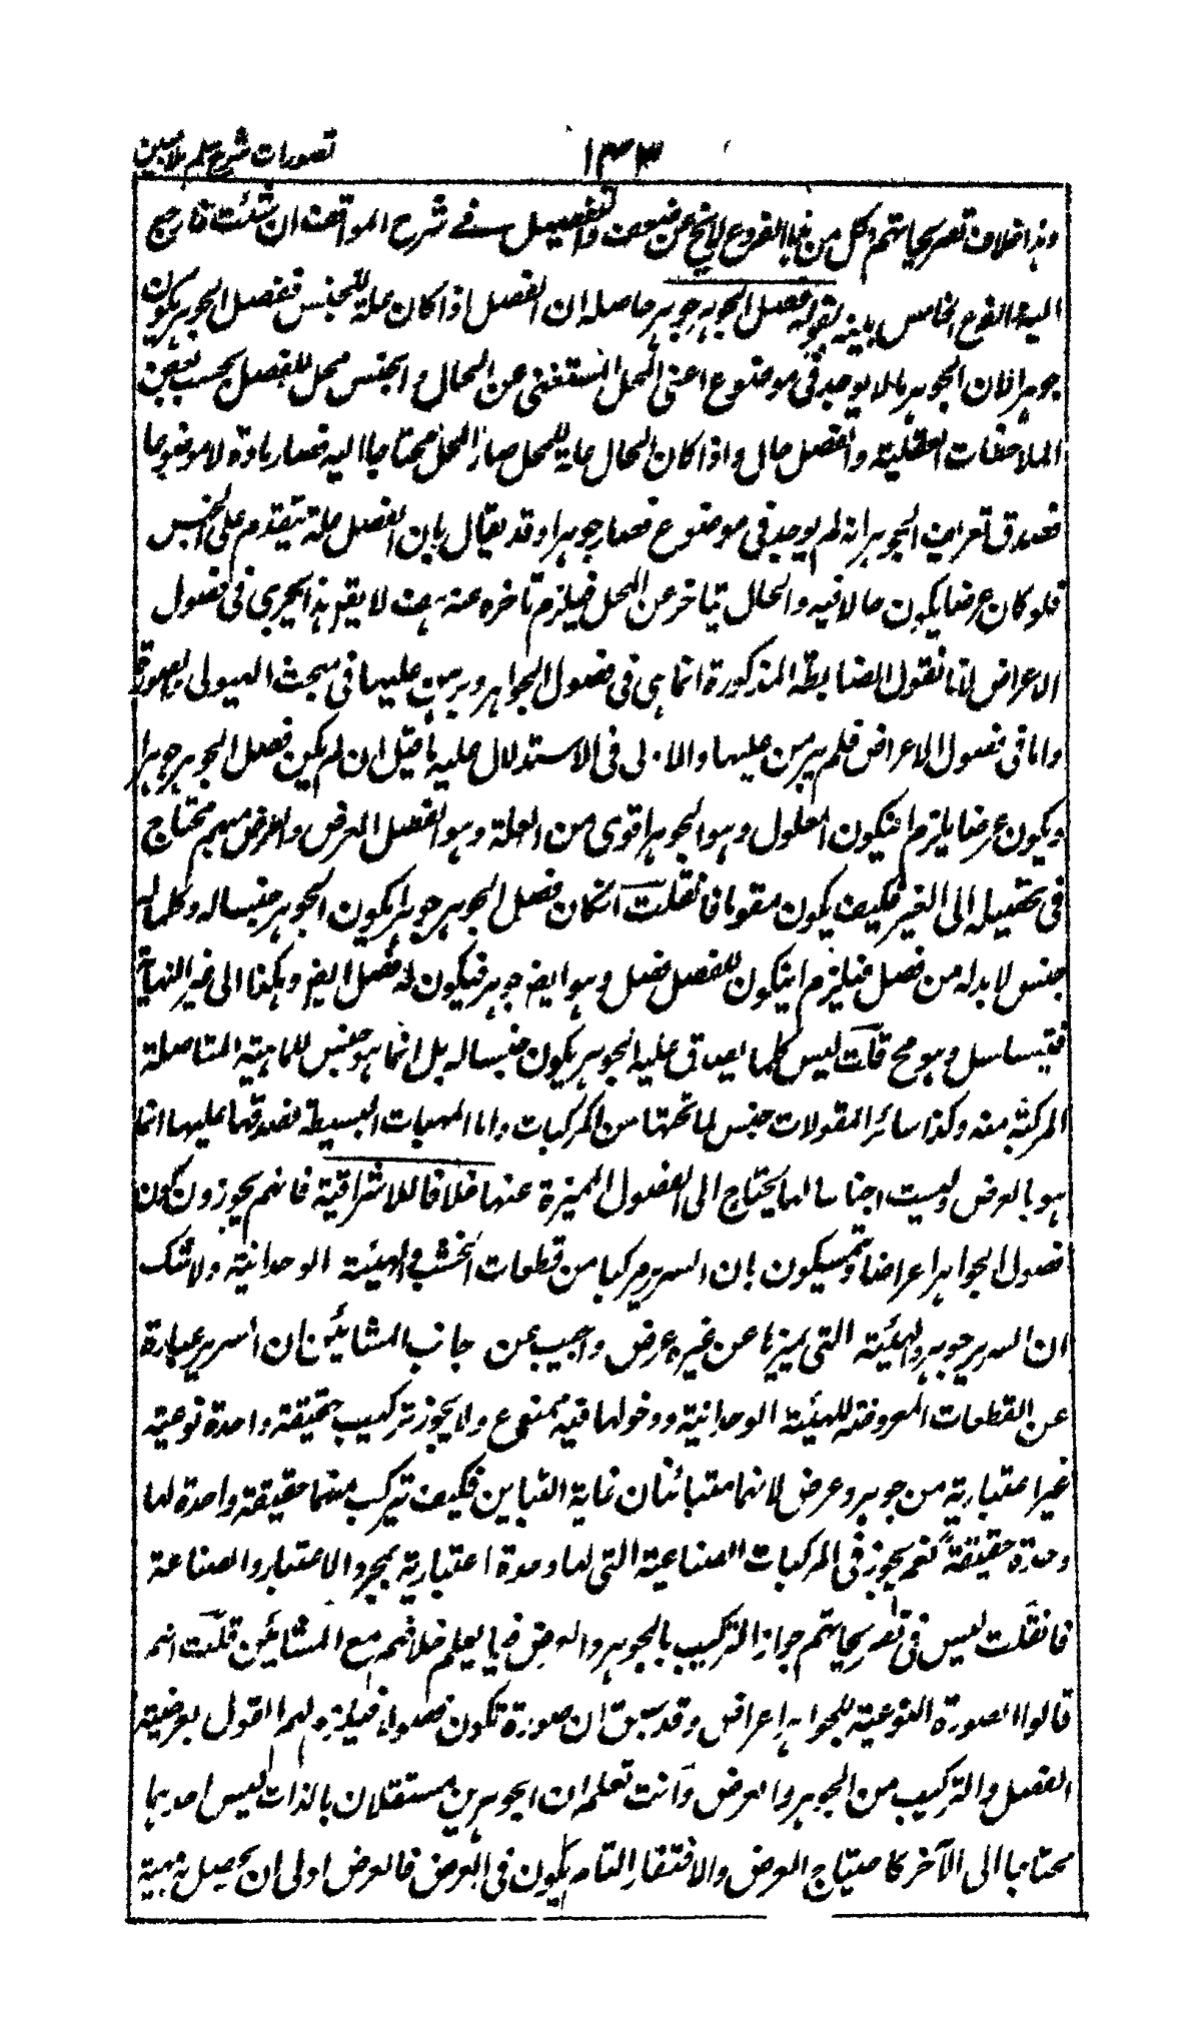 تصورات شرح سلم ملا مبين
١٣٣
وهذا خلاف تصريحاتهم وكل من هذا الفروع لا يخ عن ضعف والتفصيل في شرح المواقف ان شئت فارجع
اليه الفرع الخامس بينه بقوله فصل الجوهر جوهر حاصله ان الفصل اذا كان علة للجنس ففصل الجوهر يكون
جوهرا فان الجوهر ما لا يوجد في موضوع اعنى المحل المستغنى عن الحال والجنس محل للفصل بحسب بعض
الملاحظات العقلية والفصل حال واذا كان الحال علة للمحل صار المحل محتاجا اليه فصار مادة لا موضوعا
فصدق تعريف الجوهر انه لم يوجد في موضوع فصار جوهرا وقد يقال بان الفصل علة يتقدم على الجنس
فلو كان عرضا يكون حالا فيه والحال يتاخر عن المحل فيلزم تاخره عنه هف لا يقر هذا يجرى في فصول
الاعراض لانا نقول الضابطة المذكورة انما هى في فصول الجواهر وبرهن عليها في مبحث الهيولى والصورة
واما في فصول الاعراض فلم يبرهن عليها والاولى في الاستدلال عليه ما قيل ان لم يكن فصل الجوهر جوهرا
ويكون عرضا يلزم ان يكون المعلول وهو الجوهر اقوى من العلة وهو الفصل العرض والعرض مبهم محتاج
في تحصيله الى الغير فكيف يكون مقوما فان قلت انكان فصل الجوهر جوهرا يكون الجوهر جنسا له وكلما له
جنس لا بد له من فصل فيلزم ان يكون للفصل فصل وهو ايضا جوهر فيكون له فصل ايضا وهكذا الى غير النهاية
فتسلسل وهو مح قلت ليس كلما يصدق عليه الجوهر يكون جنسا له بل انما هو جنس للماهية المتاصلة
المركبة منه وكذا سائر المقولات جنس لما تحتها من المركبات واما المهيات البسيطة فصدقها عليها انما
هو بالعرض وليست اجناسا لها يحتاج الى الفصول المميزة عنها خلافا للاشراقية فانهم يجوزون كون
فصول الجواهر اعراضا ويتمسكون بان السرير مركبا من قطعات الخشب والهيئة الوحدانية ولا شك
ان السرير جوهر والهيئة التى يميزها عن غيره عرض واجيب عن جانب المشائين ان السرير عبارة
عن القطعات المعروضة للهيئة الوحدانية ودخولها فيه ممنوع ولا يجوز تركيب حقيقة واحدة نوعية
غير اعتبارية من جوهر وعرض لانهما متبائنان غاية التباين فكيف تتركب منهما حقيقة واحدة لها
وحدة حقيقة نعم يجوز في المركبات الصناعية التى لها وحدة اعتبارية بمجرد الاعتبار والصناعة
فان قلت ليس في تصريحاتهم جواز التركيب بالجوهر والعرض فيما يعلم خلافهم مع المشائين قلت انهم
قالوا الصورة النوعية للجواهر اعراض وقد سبق ان صورة تكون فصولا فيلزمهم القول بعرضية
الفصل والتركيب من الجوهر والعرض وانت تعلم ان الجوهرين مستقلان بالذات ليس احدهما
محتاجا الى الآخر كاحتياج العرض والافتقار التام يكون في العرض فالعرض اولى ان يحصل به مهية